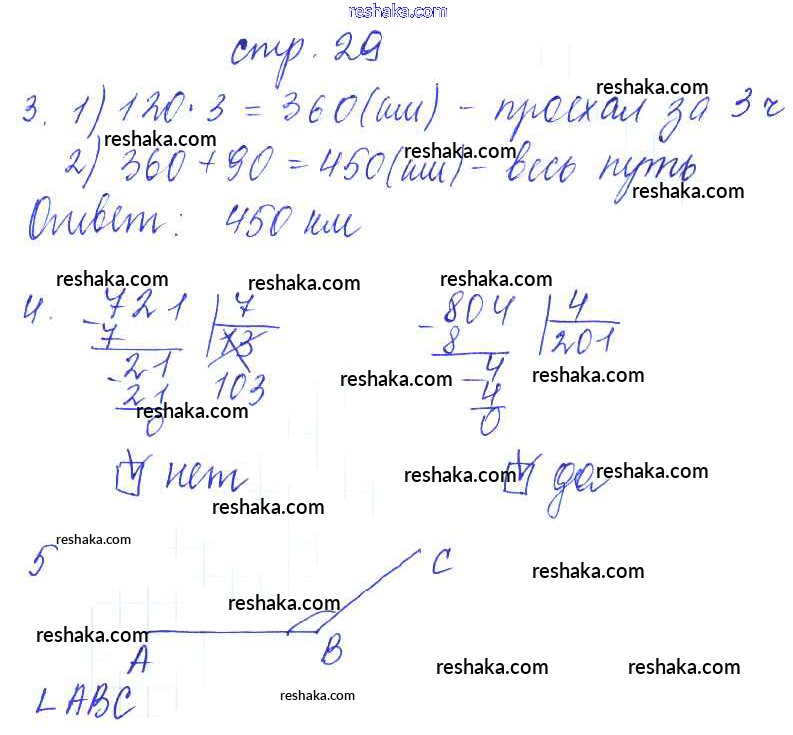 reshaka.com
стр. 29
reshaka.com
3. 1) 120·3 = 360(км) – проехал за 3 ч
reshaka.com reshaka.com
2) 360+90 = 450(км) – весь путь
reshaka.com
Ответ: 450 км
reshaka.com reshaka.com reshaka.com
4. 721 | 7 804 | 4
- 7 13 - 8 201
- 21 103 - 4
21 4
0 0
reshaka.com reshaka.com reshaka.com
нет да
reshaka.com reshaka.com
reshaka.com
5 reshaka.com C
reshaka.com
reshaka.com
A B
reshaka.com reshaka.com
∟ABC reshaka.com